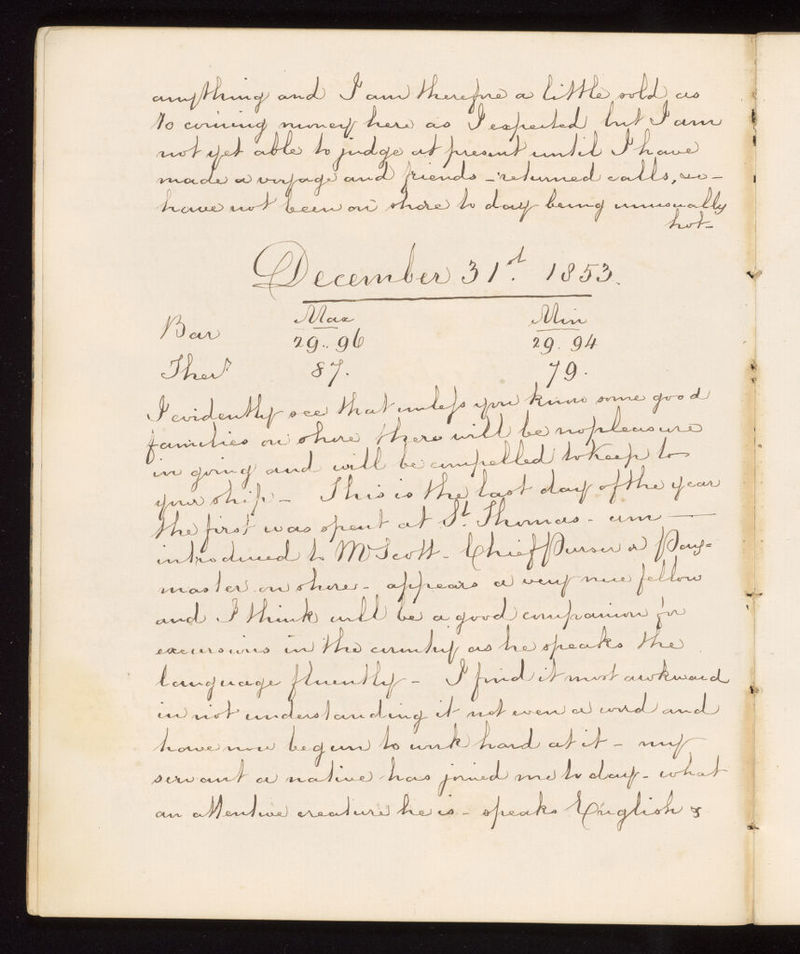 anything and I am therefore a little sold as
to coining money here as I expected but I am
not yet able to judge at present until I have
made a voyage and friends - returned calls, &c -
have not been on shore to day being unusually
hot -
December 31st. 1853.
Max Min
Bar 29.. 96 29. 94
Ther 87. 79.
I evidently see that unless you know some good
families on shore there will be no pleasure
in going and will be compelled to keep to
your ship - This is the last day of the year
the first was spent at St Thomas - am —
introduced to Mr Scott - Chief Purser & Pay=
master on shore - appears a very nice fellow
and I think will be a good companion for
excursions in the country as he speaks the
language fluently - I find it most awkward
in not understanding it not even a word and
have now begun to work hard at it - my
servant a native has joined me to day - what
an attentive creature he is - speaks English &